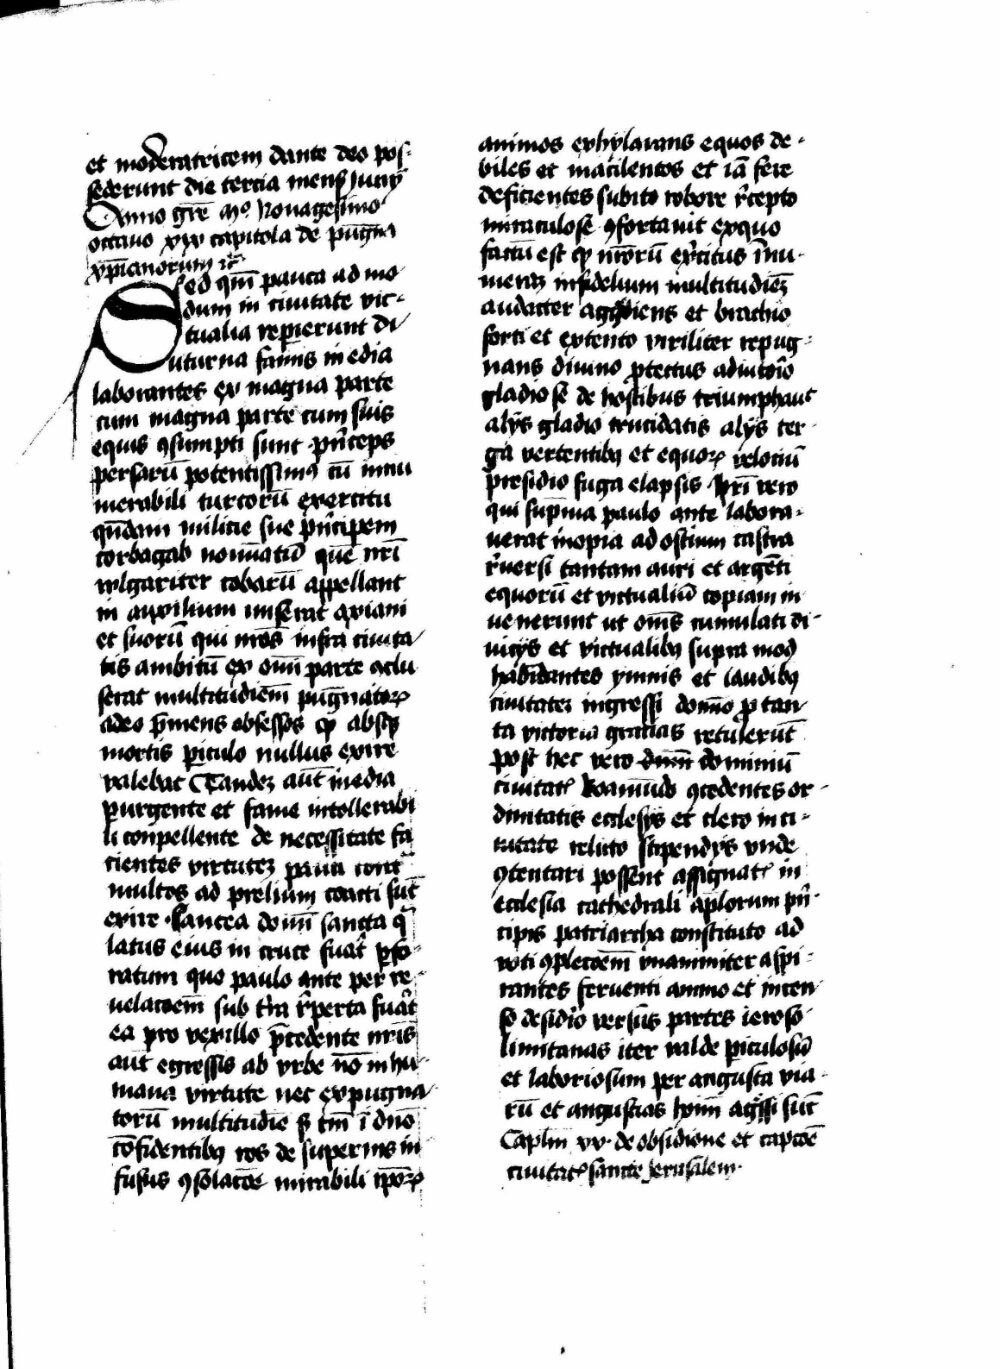 et moderatricem dante deo pos-
sederunt die tercia mens Junij
Anno gre mo nonagesimo
octauo xix capitola de pugna
xpianorum ic
Sed qm pauca ad mo
dum in ciuitate vic-
tualia repierunt di
uturna famis inedia
laborantes ex magna parte
cum magna parte cum suis
equis 9sumpti sunt princeps
persarū potentissim9 cū innu
merabili turcorū exercitu
qndam milicie sue pncipem
corbagab noiatū quē nrī
wlgariter cobarū appellant
in auxilium miserat axiani
et suorū qui nros infra ciuita
tis ambitū ex omi parte oclu
serat multitudiem pugnatoꝝ
adeo pmens obsessos qp absqꝫ
mortis piculo nullus exire
valebat Tandeꝫ aut inedia
purgente et fame intollerabi
li conpellente de necessitate fa
cientes virtuteꝫ pauci cont
multos ad prelium coacti sut
exire lancea domi sancta q
latus eius in cruce fuāt pfo-
ratum quo paulo ante per re-
uelacoem sub tra rperta fuāt
ea pro vexillo pcedente nris
aut egressis ab vrbe nō in hu-
mana virtute nec expugna
torū multitudie s tm i dno
cōfidentibꝫ ros de supernis in
fusus 9solacōe mirabili ipoꝝ
animos exhylarans equos de-
biles et macilentos et iā fere
deficientes subito robore rcepto
miraculose 9fortauit exquo
factū est qp nrorū exercitus innu-
meraꝫ infidelium multitudieꝫ
audacter aggrediens et brachio
forti et extento viriliter repug-
nans diuino ptectus adiutorio
gladio se de hostibus triumphaut
alijs gladio trucidatis alijs ter-
ga vertentibꝫ et equoꝝ velociū
presidio fuga elapsis nri vero
qui supma paulo ante labora-
uerat inopia ad ostium castra
reuersi tantam auri et argenti
equorū et victualiū copiam in
uenerunt ut oms cumulati di-
uicijs et victualibꝫ supra mod
habūdantes ymnis et laudibꝫ
ciuitateꝫ ingressi domino pro tan
ta victoria gratias retulerūt
post hec vero dominiū
ciuitatꝭ Boamūdo 9cedentes or-
dinitatis ecclesijs et clero in ci-
uitate relicto stipendijs vnde
9tentari possent assignatꝭ in
ecclesia cathedrali aplorum prin-
cipis patriarcha constituto ad
voti 9pletoem vnanimiter aspi-
rantes feruenti animo et inten
so desidio versus partes ieroso-
limitanas iter valde piculosū
et laboriosum per angusta via-
rū et angustias homi aggssi sut
Caplm xx de obsidione et captōe
ciuitatꝭ sancte Jerusalem